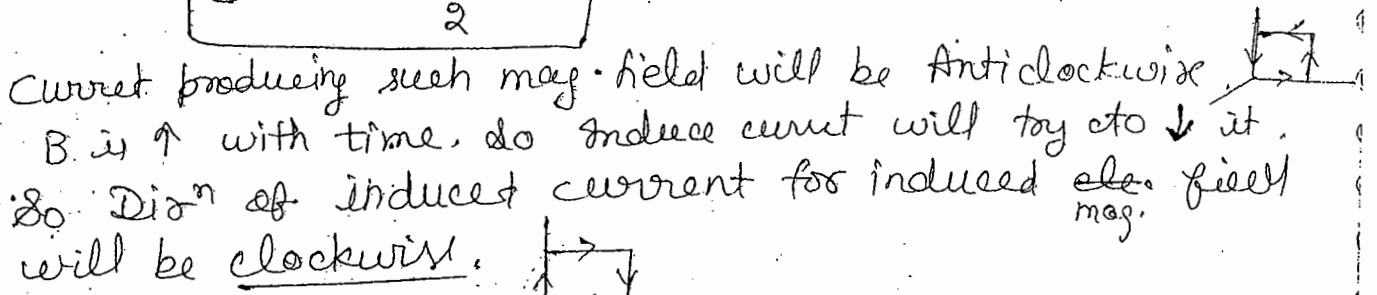 2
Curret producing such mag. field will be Anticlockwise
B is ↑ with time. So Induce currut will try to ↓ it.
So Dirⁿ of induced current for induced ele. field
mag.
will be clockwise.